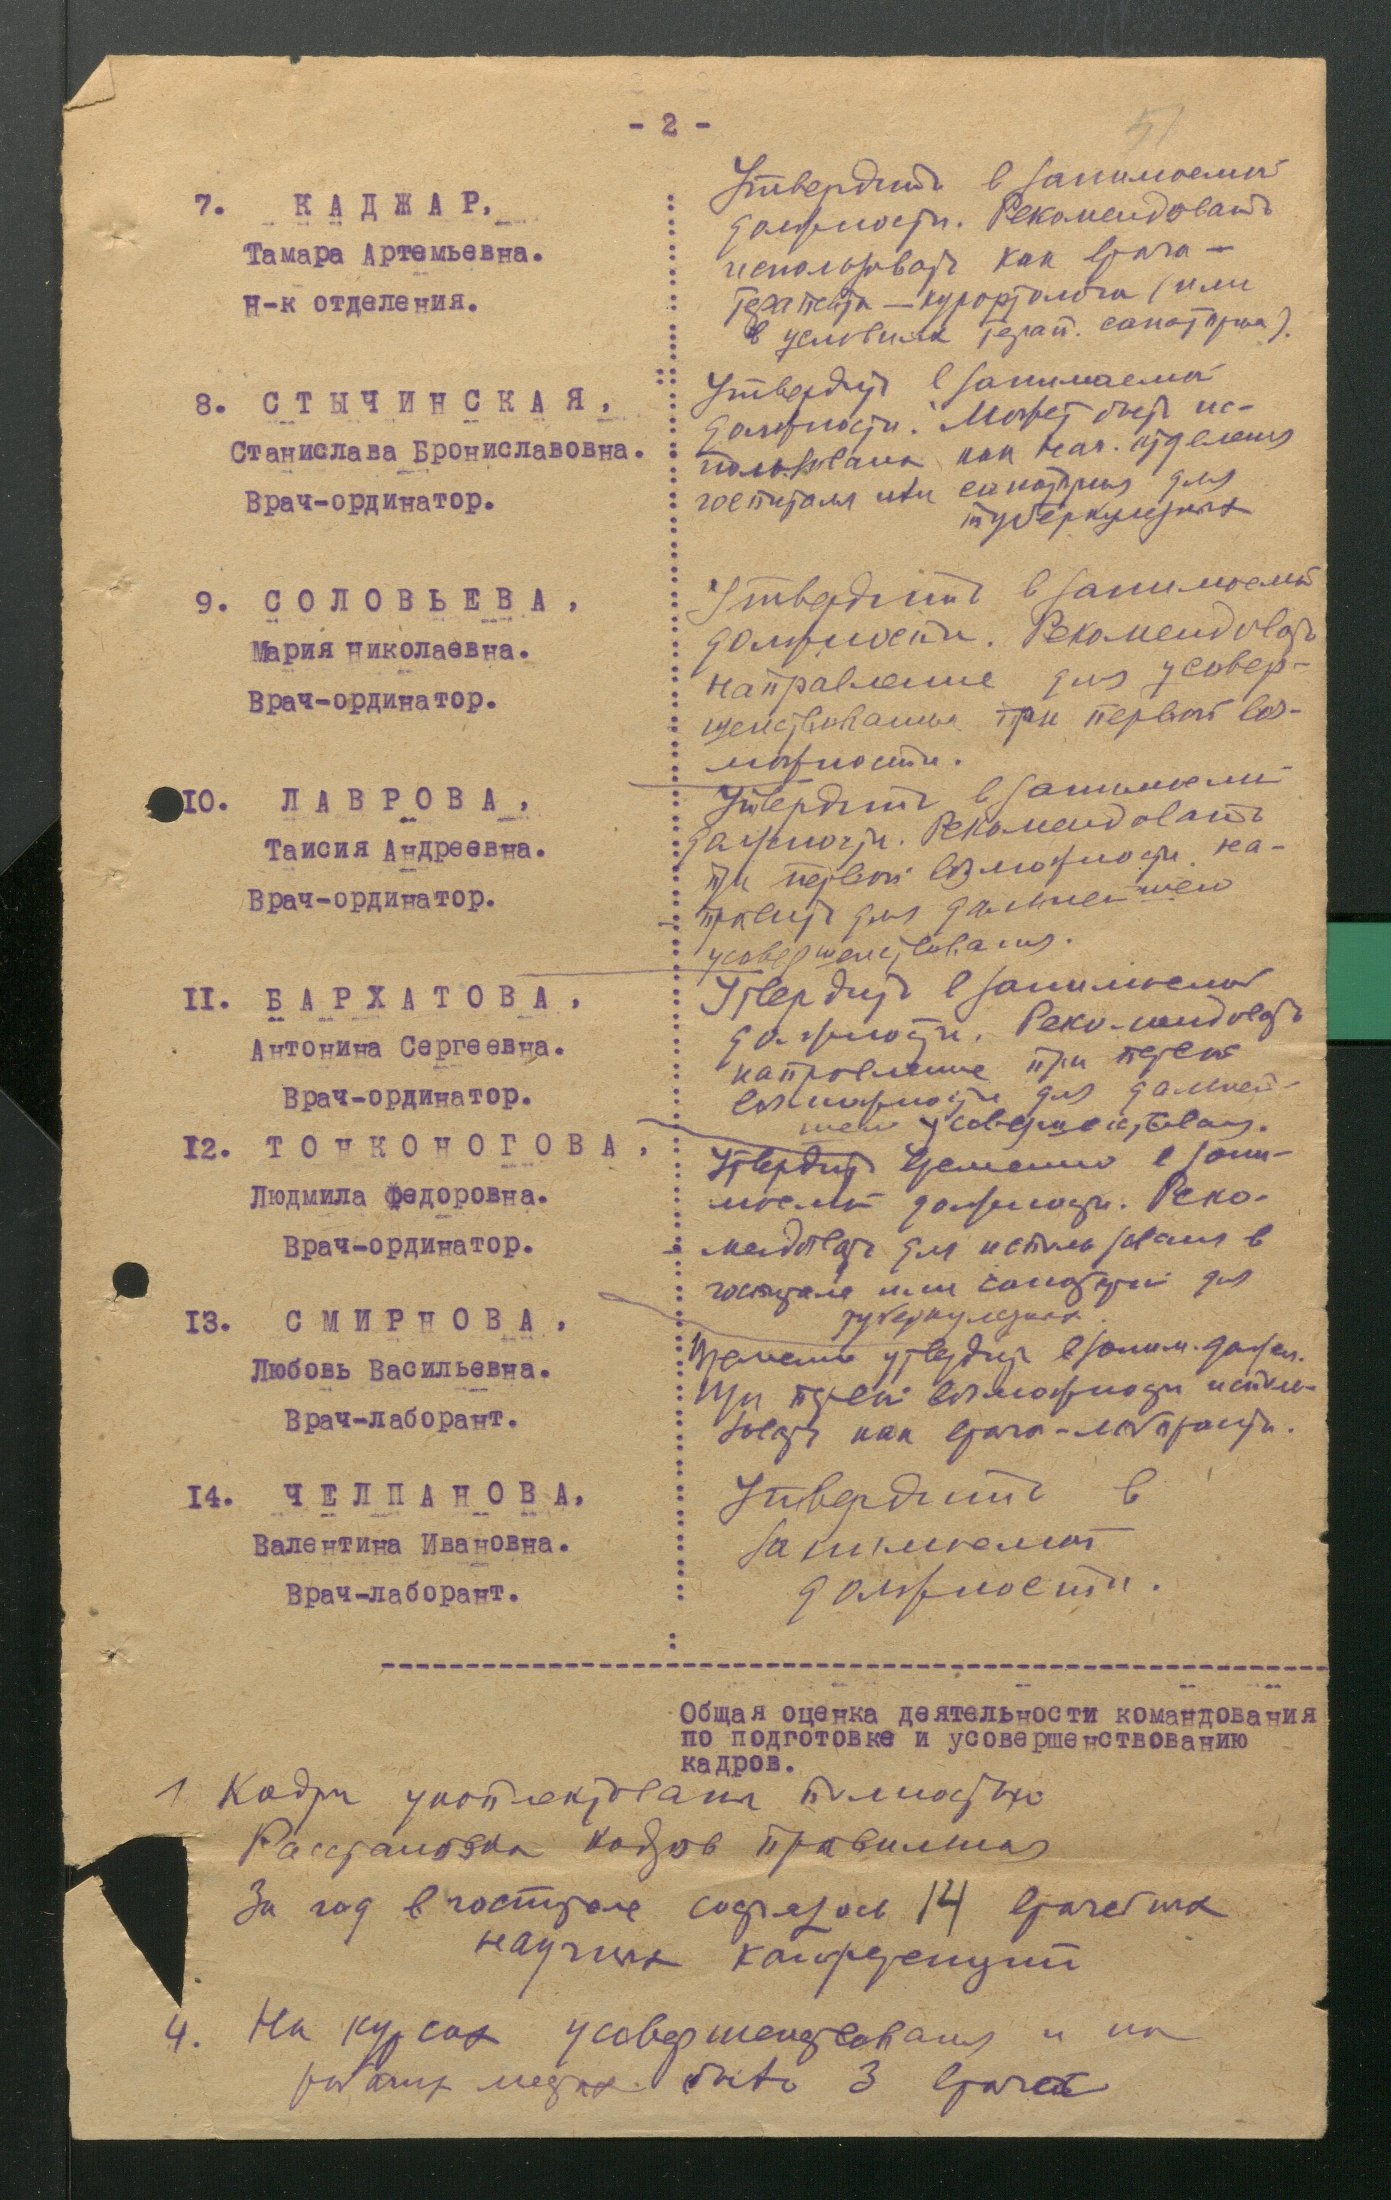 - 2 -
51
7. КАДЖАР,
Тамара Артемьевна.
Н-к отделения.
Утвердить в занимаемой
должности. Рекомендовать
использовать как врача –
терапевта – курортолога (или
в условиях терап. санатория).
8. СТЫЧИНСКАЯ,
Станислава Брониславовна.
Врач-ординатор.
Утвердить в занимаемой
должности. Может быть ис-
пользована как нач. отделения
госпиталя или санатория для
туберкулезных
9. СОЛОВЬЕВА,
Мария Николаевна.
Врач-ординатор.
Утвердить в занимаемой
должности. Рекомендовать
направление для усовер-
шенствования при первой воз-
можности.
10. ЛАВРОВА,
Таисия Андреевна.
Врач-ординатор.
Утвердить в занимаемой
должности. Рекомендовать
при первой возможности на-
править для дальнейшего
усовершенствования.
11. БАРХАТОВА,
Антонина Сергеевна.
Врач-ординатор.
Утвердить в занимаемой
должности. Рекомендовать
направление при первой
возможности для дальней-
шего усовершенствования.
12. ТОНКОНОГОВА,
Людмила Федоровна.
Врач-ординатор.
Утвердить временно в зани-
маемой должности. Реко-
мендовать для использования в
госпитале или санатории для
туберкулезных.
13. СМИРНОВА,
Любовь Васильевна.
Врач-лаборант.
Временно утвердить в заним. должн.
При первой возможности исполь-
зовать как врача-лаборанта.
14. ЧЕЛПАНОВА,
Валентина Ивановна.
Врач-лаборант.
Утвердить в
занимаемой
должности.
Общая оценка деятельности командования
по подготовке и усовершенствованию
кадров.
1 Кадры укомплектованы полностью
Расстановка кадров правильная
За год в госпитале 14 врачебных
научных конференций
4. На курсах усовершенствования и на
рабочих местах было 3 врача